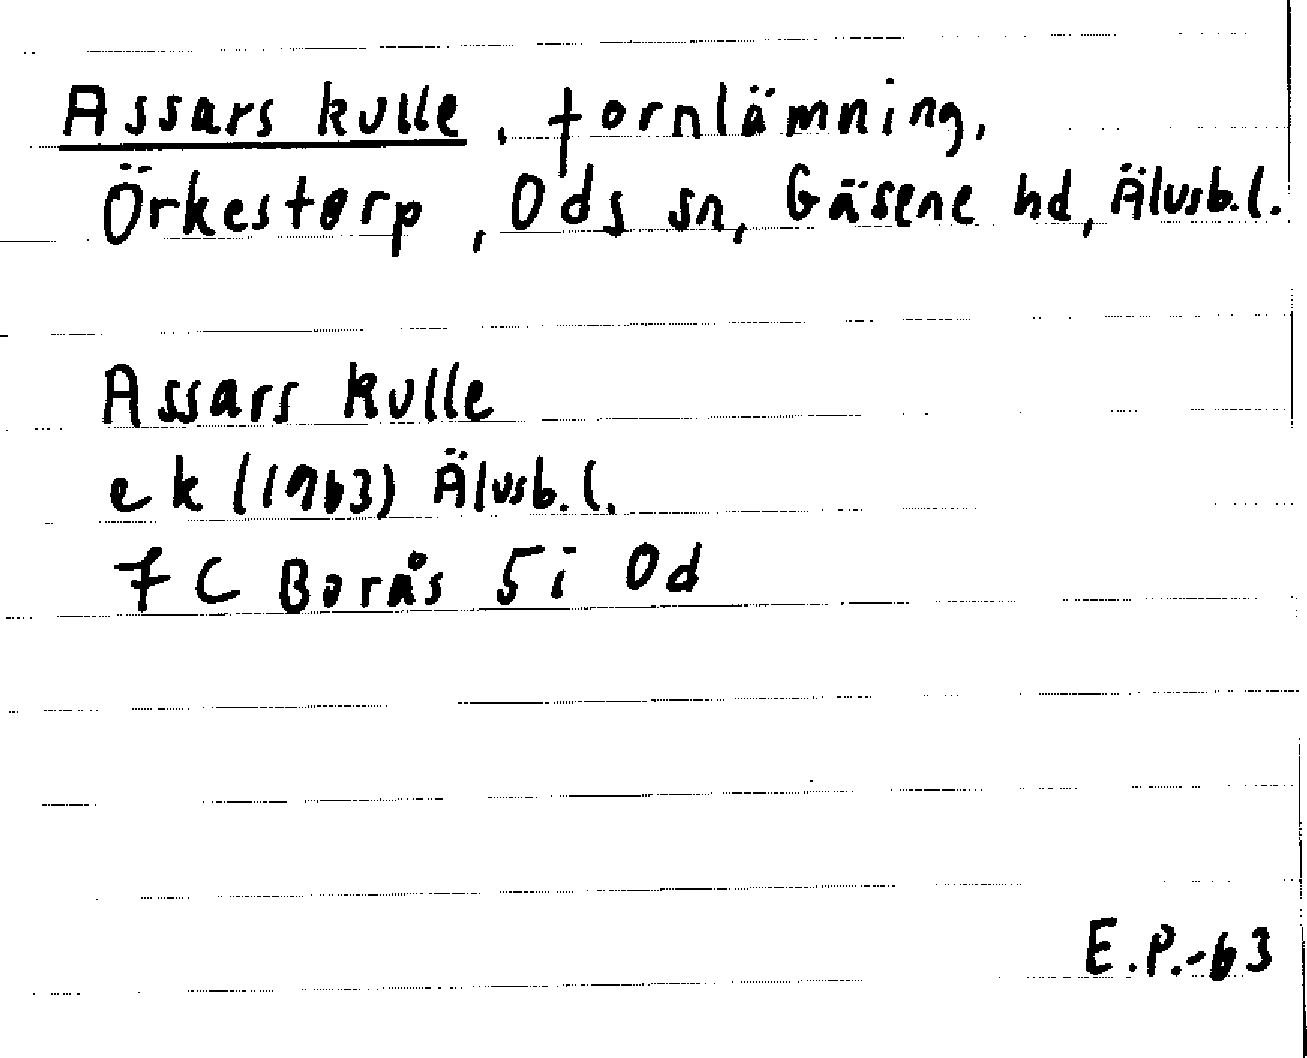 Assars kulle, fornlämning,
Örkestorp, Ods sn, Gäsene hd, Älvsb.l.
Assars kulle
ek (1963) Älvsb.l.
7 C Borås 5i Od
E.P.-63